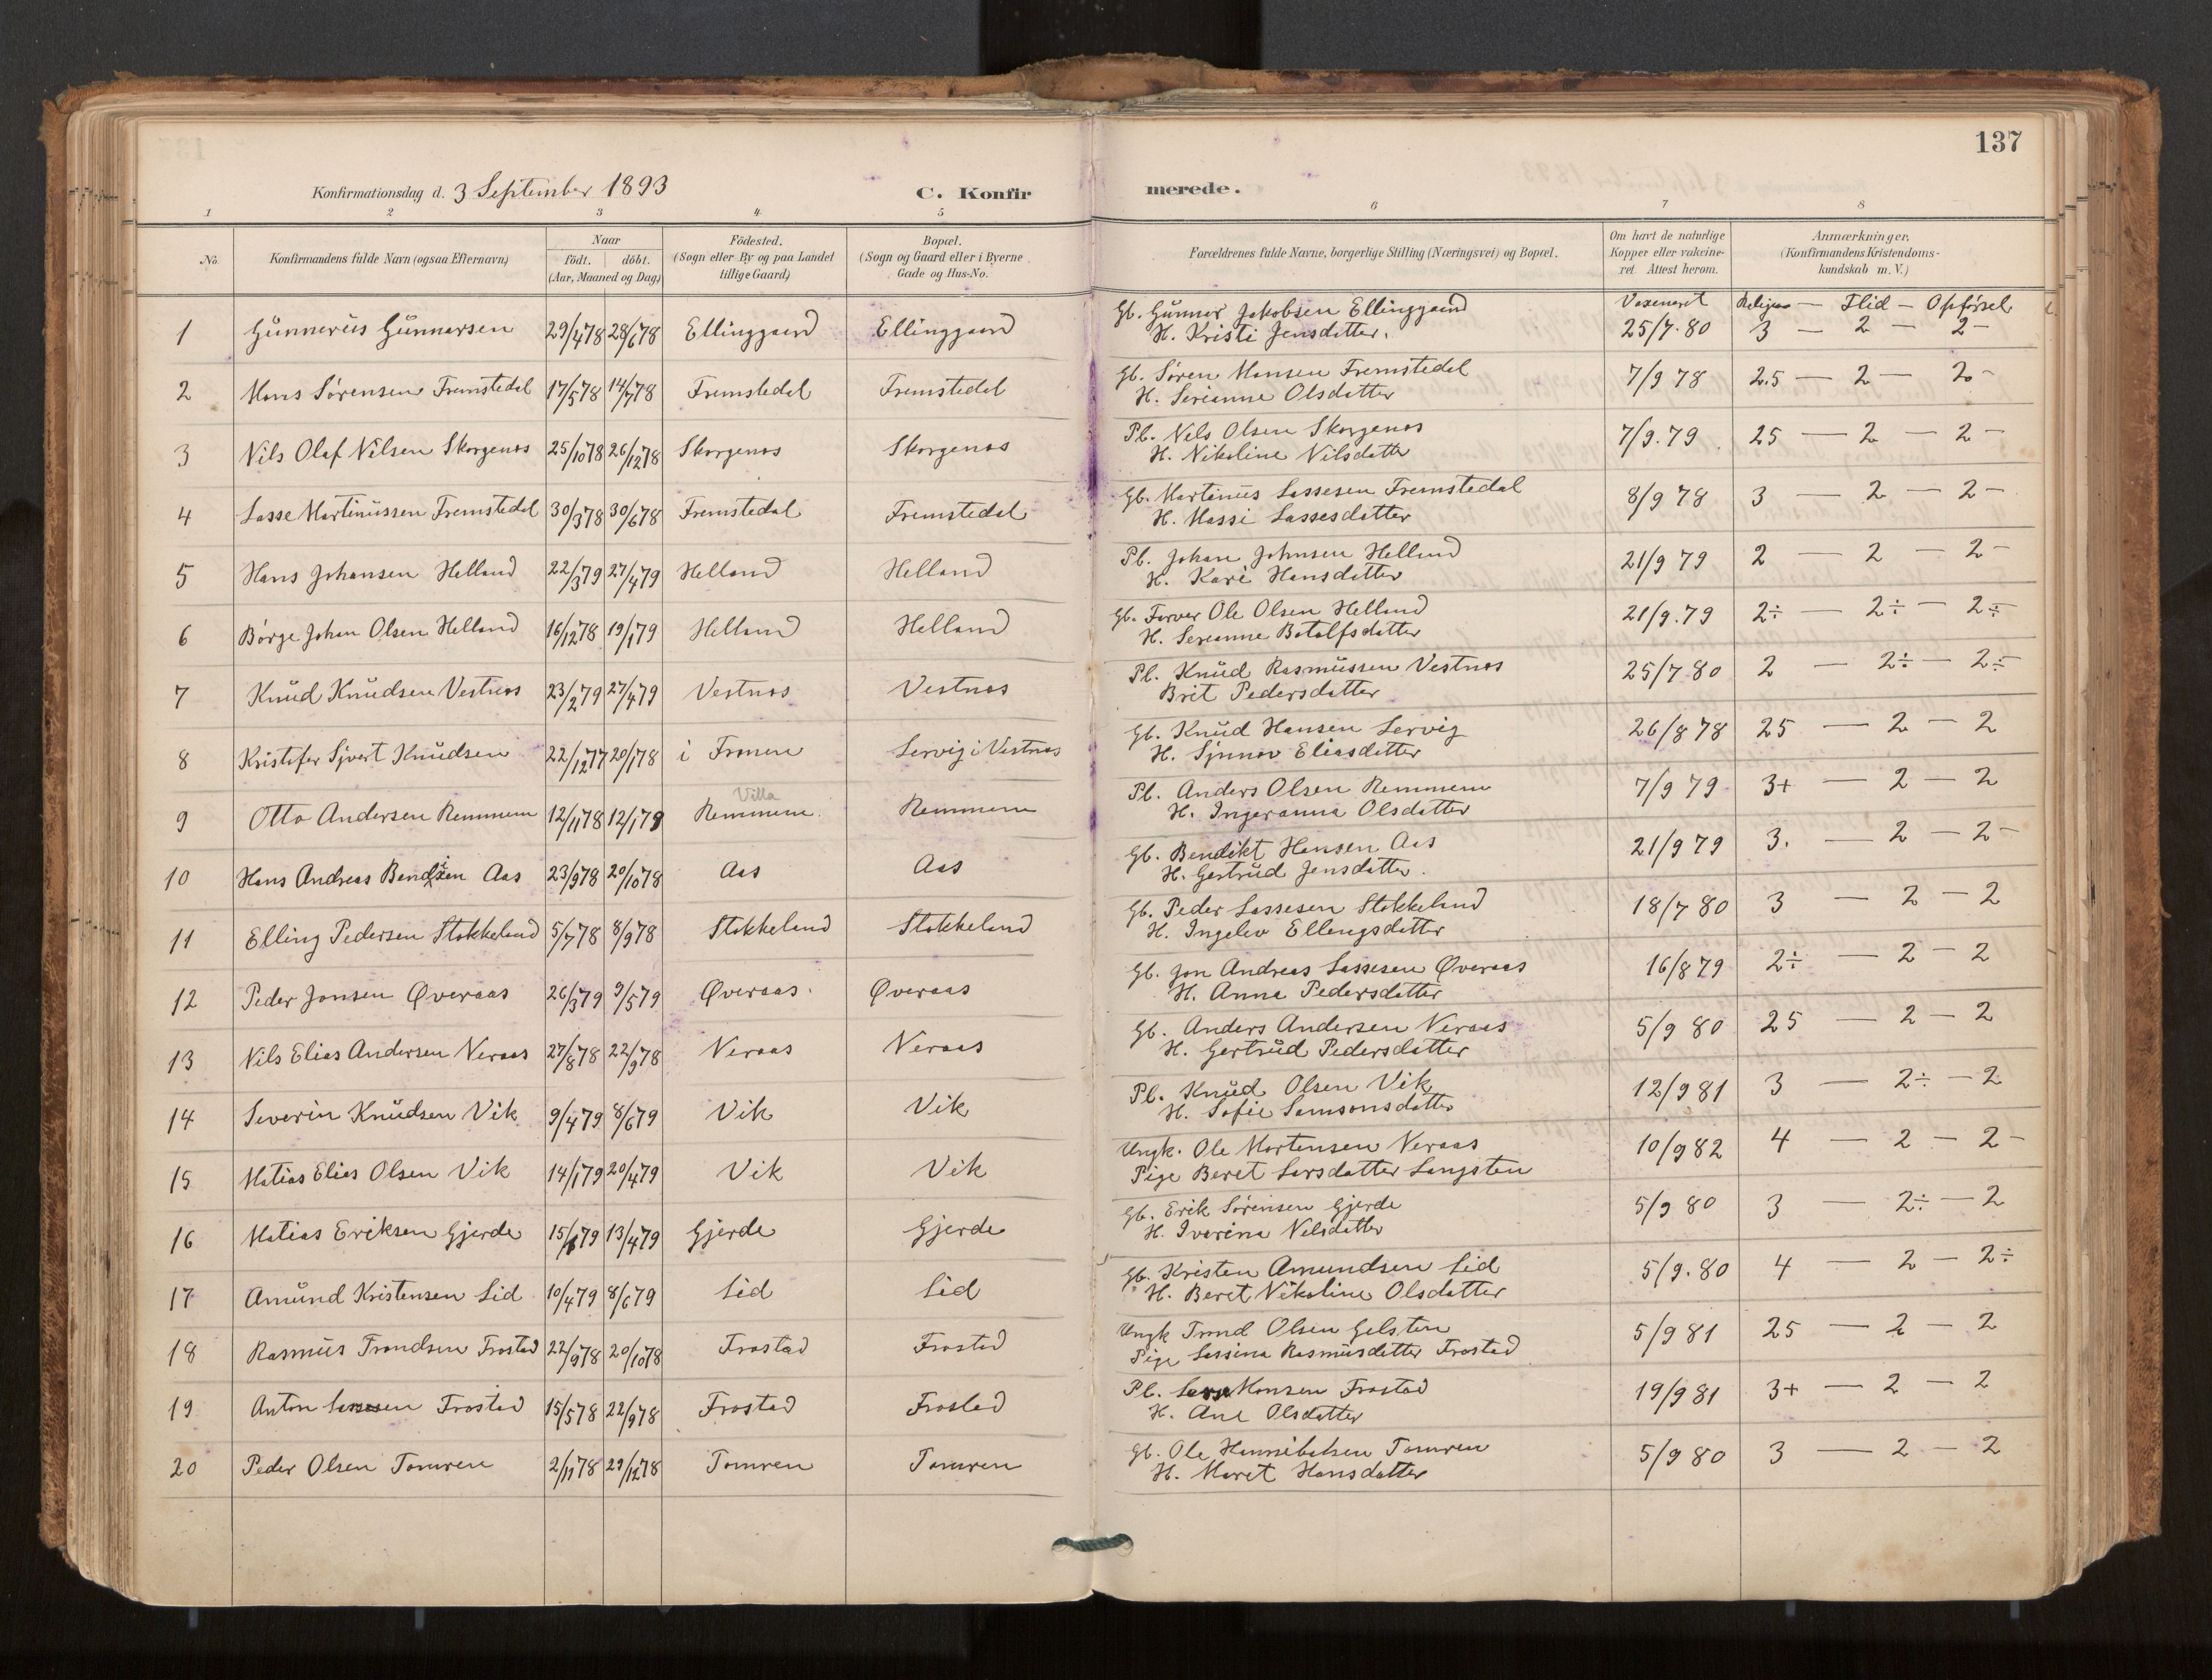 137
Konfirmationsdag d. 3 September 1893 C. Konfir merede.
1 2 3 4 5 6 7 8
No. Konfirmandens fulde Navn (ogsaa Efternavn) Naar födt. döbt. (Aar, Maaned og Dag) Födested. (Sogn eller By og paa Landet tillige Gaard) Bopæl. (Sogn og Gaard eller i Byerne Gade og Hus-No. Forældrenes fulde Navne, borgerlige Stilling (Næringsvei) og Bopæl. Om havt de naturlige Kopper eller vakcineret. Attest herom. Anmærkninger, (Konfirmandens Kristendomskundskab m. V.)
Vaxeneret Religion — Flid — Opførsel
1 Gunnerius Gunnarsen 29/4 78 28/6 78 Ellinggaard Ellinggaard Gb. Gunnar Jakobsen Ellinggaard 25/7.80 3 — 2 — 2 –
H. Kristi Jensdatter.
2 Hans Sørensen Fremstedal 17/5 78 14/7 78 Fremstedal Fremstedal Gb. Søren Hansen Fremstedal 7/9 78 2.5 — 2 — 2 –
H. Serianne Olsdatter
3 Nils Olaf Nilsen Skorgenes 25/10 78 26/12 78 Skorgenes Skorgenes Pl. Nils Olsen Skorgenes 7/9.79 25 — 2 — 2 –
H. Nikoline Nilsdatter
4 Lasse Martinussen Fremstedal 30/3 78 30/6 78 Fremstedal Fremstedal Gb. Martinus Lassesen Fremstedal 8/9 78 3 — 2 — 2 –
H. Massi Lassesdatter
5 Hans Johansen Helland 22/3 79 27/4 79 Helland Helland Pl. Johan Johnsen Helland 21/9 79 2 — 2 — 2 –
H. Kari Hansdatter
6 Børge Johan Olsen Helland 16/12 78 19/1 79 Helland Helland Gb. Farver Ole Olsen Helland 21/9.79 2÷ — 2÷ — 2÷
H. Serianne Botolfsdatter
7 Knud Knudsen Vestnes 23/2 79 27/4 79 Vestnes Vestnes Pl. Knud Rasmussen Vestnes 25/7 80 2 — 2÷ — 2÷
Brit Pedersdatter
8 Kristofer Sjvert Knudsen 22/12 77 20/1 78 i Franen Lervig i Vestnes Gb. Knud Hansen Lervig 26/8 78 25 — 2 — 2
H. Synnøv Eliasdatter
Villa
9 Otto Andersen Remmem 12/11 78 12/1 79 Remmem Remmem Pl. Anders Olsen Remmem 7/9 79 3+ — 2 — 2
H. Ingeranna Olsdatter
10 Hans Andreas Bendixen Aas 23/9 78 20/10 78 Aas Aas Gb. Bendikt Hansen Aas 21/9 79 3. — 2 — 2 –
H. Gertrud Jensdatter.
11 Elling Pedersen Stokkeland 5/7 78 8/9 78 Stokkeland Stokkeland Gb. Peder Lassesen Stokkeland 18/7 80 3 — 2 — 2
H. Ingelev Ellingsdatter
12 Peder Jonsen Øveraas 26/3 79 9/5 79 Øveraas Øveraas Gb. Jon Andreas Lassesen Øveraas 16/8 79 2÷ — 2 — 2
H. Anne Pedersdatter
13 Nils Elias Andersen Neraas 27/8 78 22/9 78 Neraas Neraas Gb. Anders Andersen Neraas 5/9 80 25 — 2 — 2
H. Gertrud Pedersdatter
14 Severin Knudsen Vik 9/4 79 8/6 79 Vik Vik Pl. Knud Olsen Vik 12/9 81 3 — 2÷ — 2
H. Sofie Samsonsdatter
15 Matias Elias Olsen Vik 14/1 79 20/4 79 Vik Vik Ungk. Ole Mortensen Neraas 10/9 82 4 — 2 — 2 –
Pige Beret Larsdatter Langsten
16 Matias Eriksen Gjerde 15/1 79 13/4 79 Gjerde Gjerde Gb. Erik Sørensen Gjerde 5/9 80 3 — 2÷ — 2
H. Iverina Nilsdatter
17 Amund Kristensen Lid 10/4 79 8/6 79 Lid Lid Gb. Kristen Amundsen Lid 5/9.80 4 — 2 — 2÷
H. Beret Nikoline Olsdatter
18 Rasmus Trondsen Frostad 22/9 78 20/10 78 Frostad Frostad Ungk Trond Olsen Gelsten 5/9 81 25 — 2 — 2
Pige Lassina Rasmusdatter Frostad
19 Anton Lassesen Frostad 15/5 78 22/9 78 Frostad Frostad Pl. Lasse Monsen Frostad 19/9 81 3+ — 2 — 2
H. Ane Olsdatter
20 Peder Olsen Tomren 2/11 78 29/12 78 Tomren Tomren Gb. Ole Hannibalsen Tomren 5/9 80 3 — 2 — 2
H. Maret Hansdatter